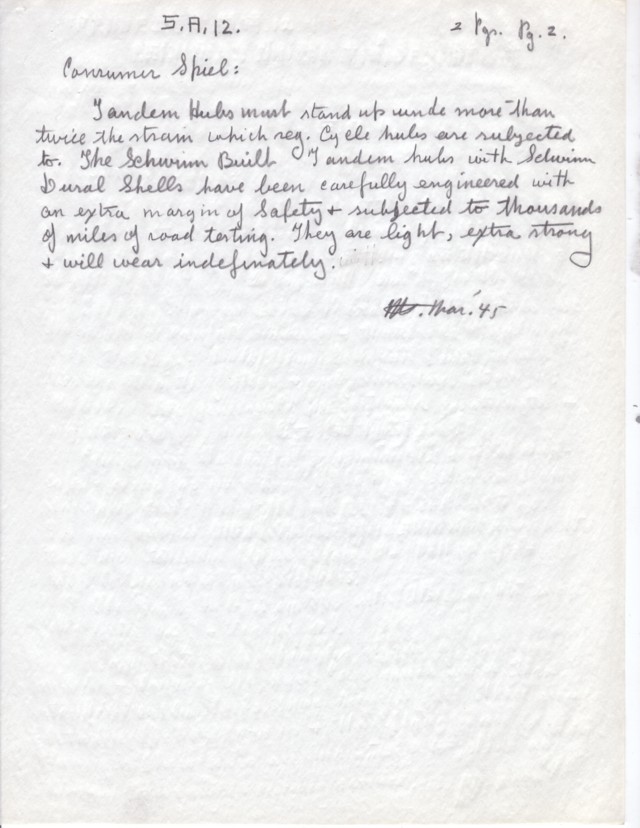 S.A.12. 2 Pgs. Pg. 2.
Consumer Spiel:
Tandem Hubs must stand up unde more than
twice the strain which reg. Cycle hubs are subjected
to. The Schwinn Built Tandem hubs with Schwinn
Dural Shells have been carefully engineered with
an extra margin of Safety + subjected to thousands
of miles of road testing. They are light, extra strong
+ will wear indefinately.
Mar. '45